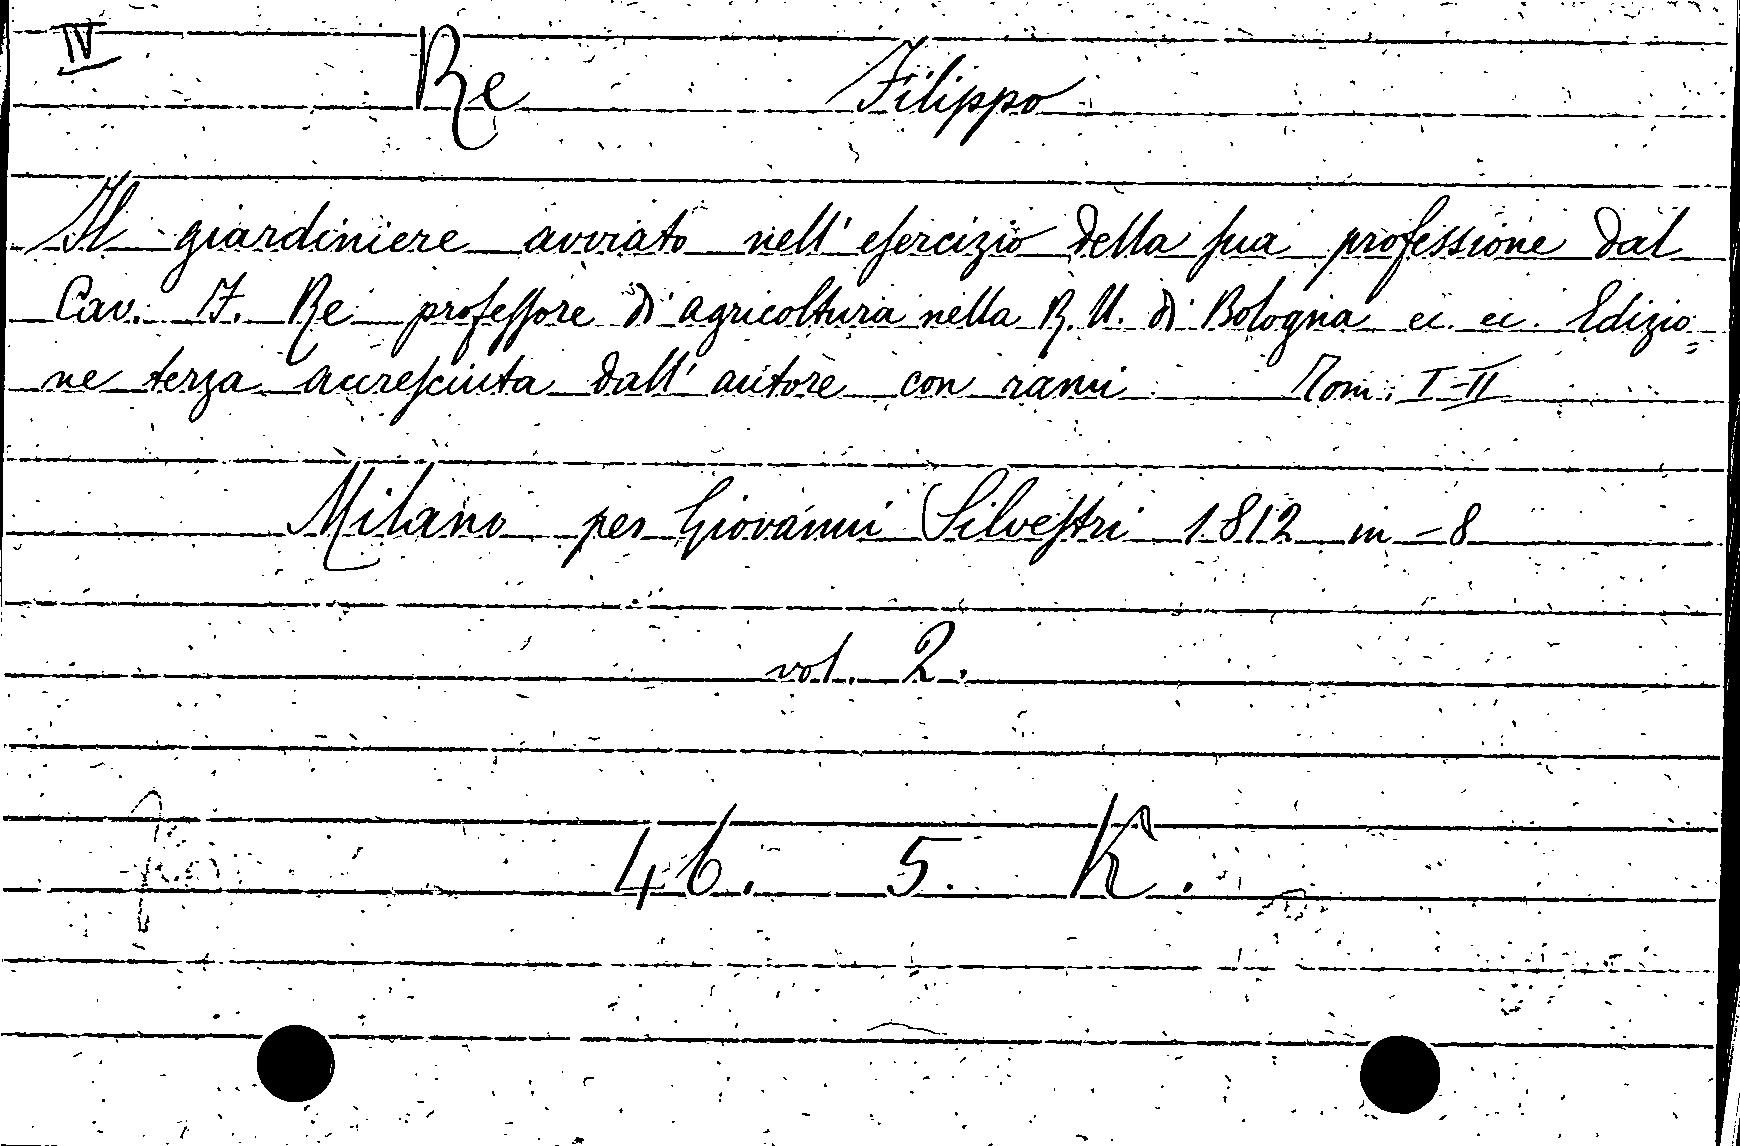 IV
Re Filippo
Il giardiniere avviato nell' esercizio della sua professione dal
Cav. F. Re professore di agricoltura nella R. U. di Bologna ec. ec. Edizio=
ne terza accresciuta dall' autore con rami Tom. I-II
Milano per Giovanni Silvestri 1812 in-8
vol. 2.
46. 5. K.